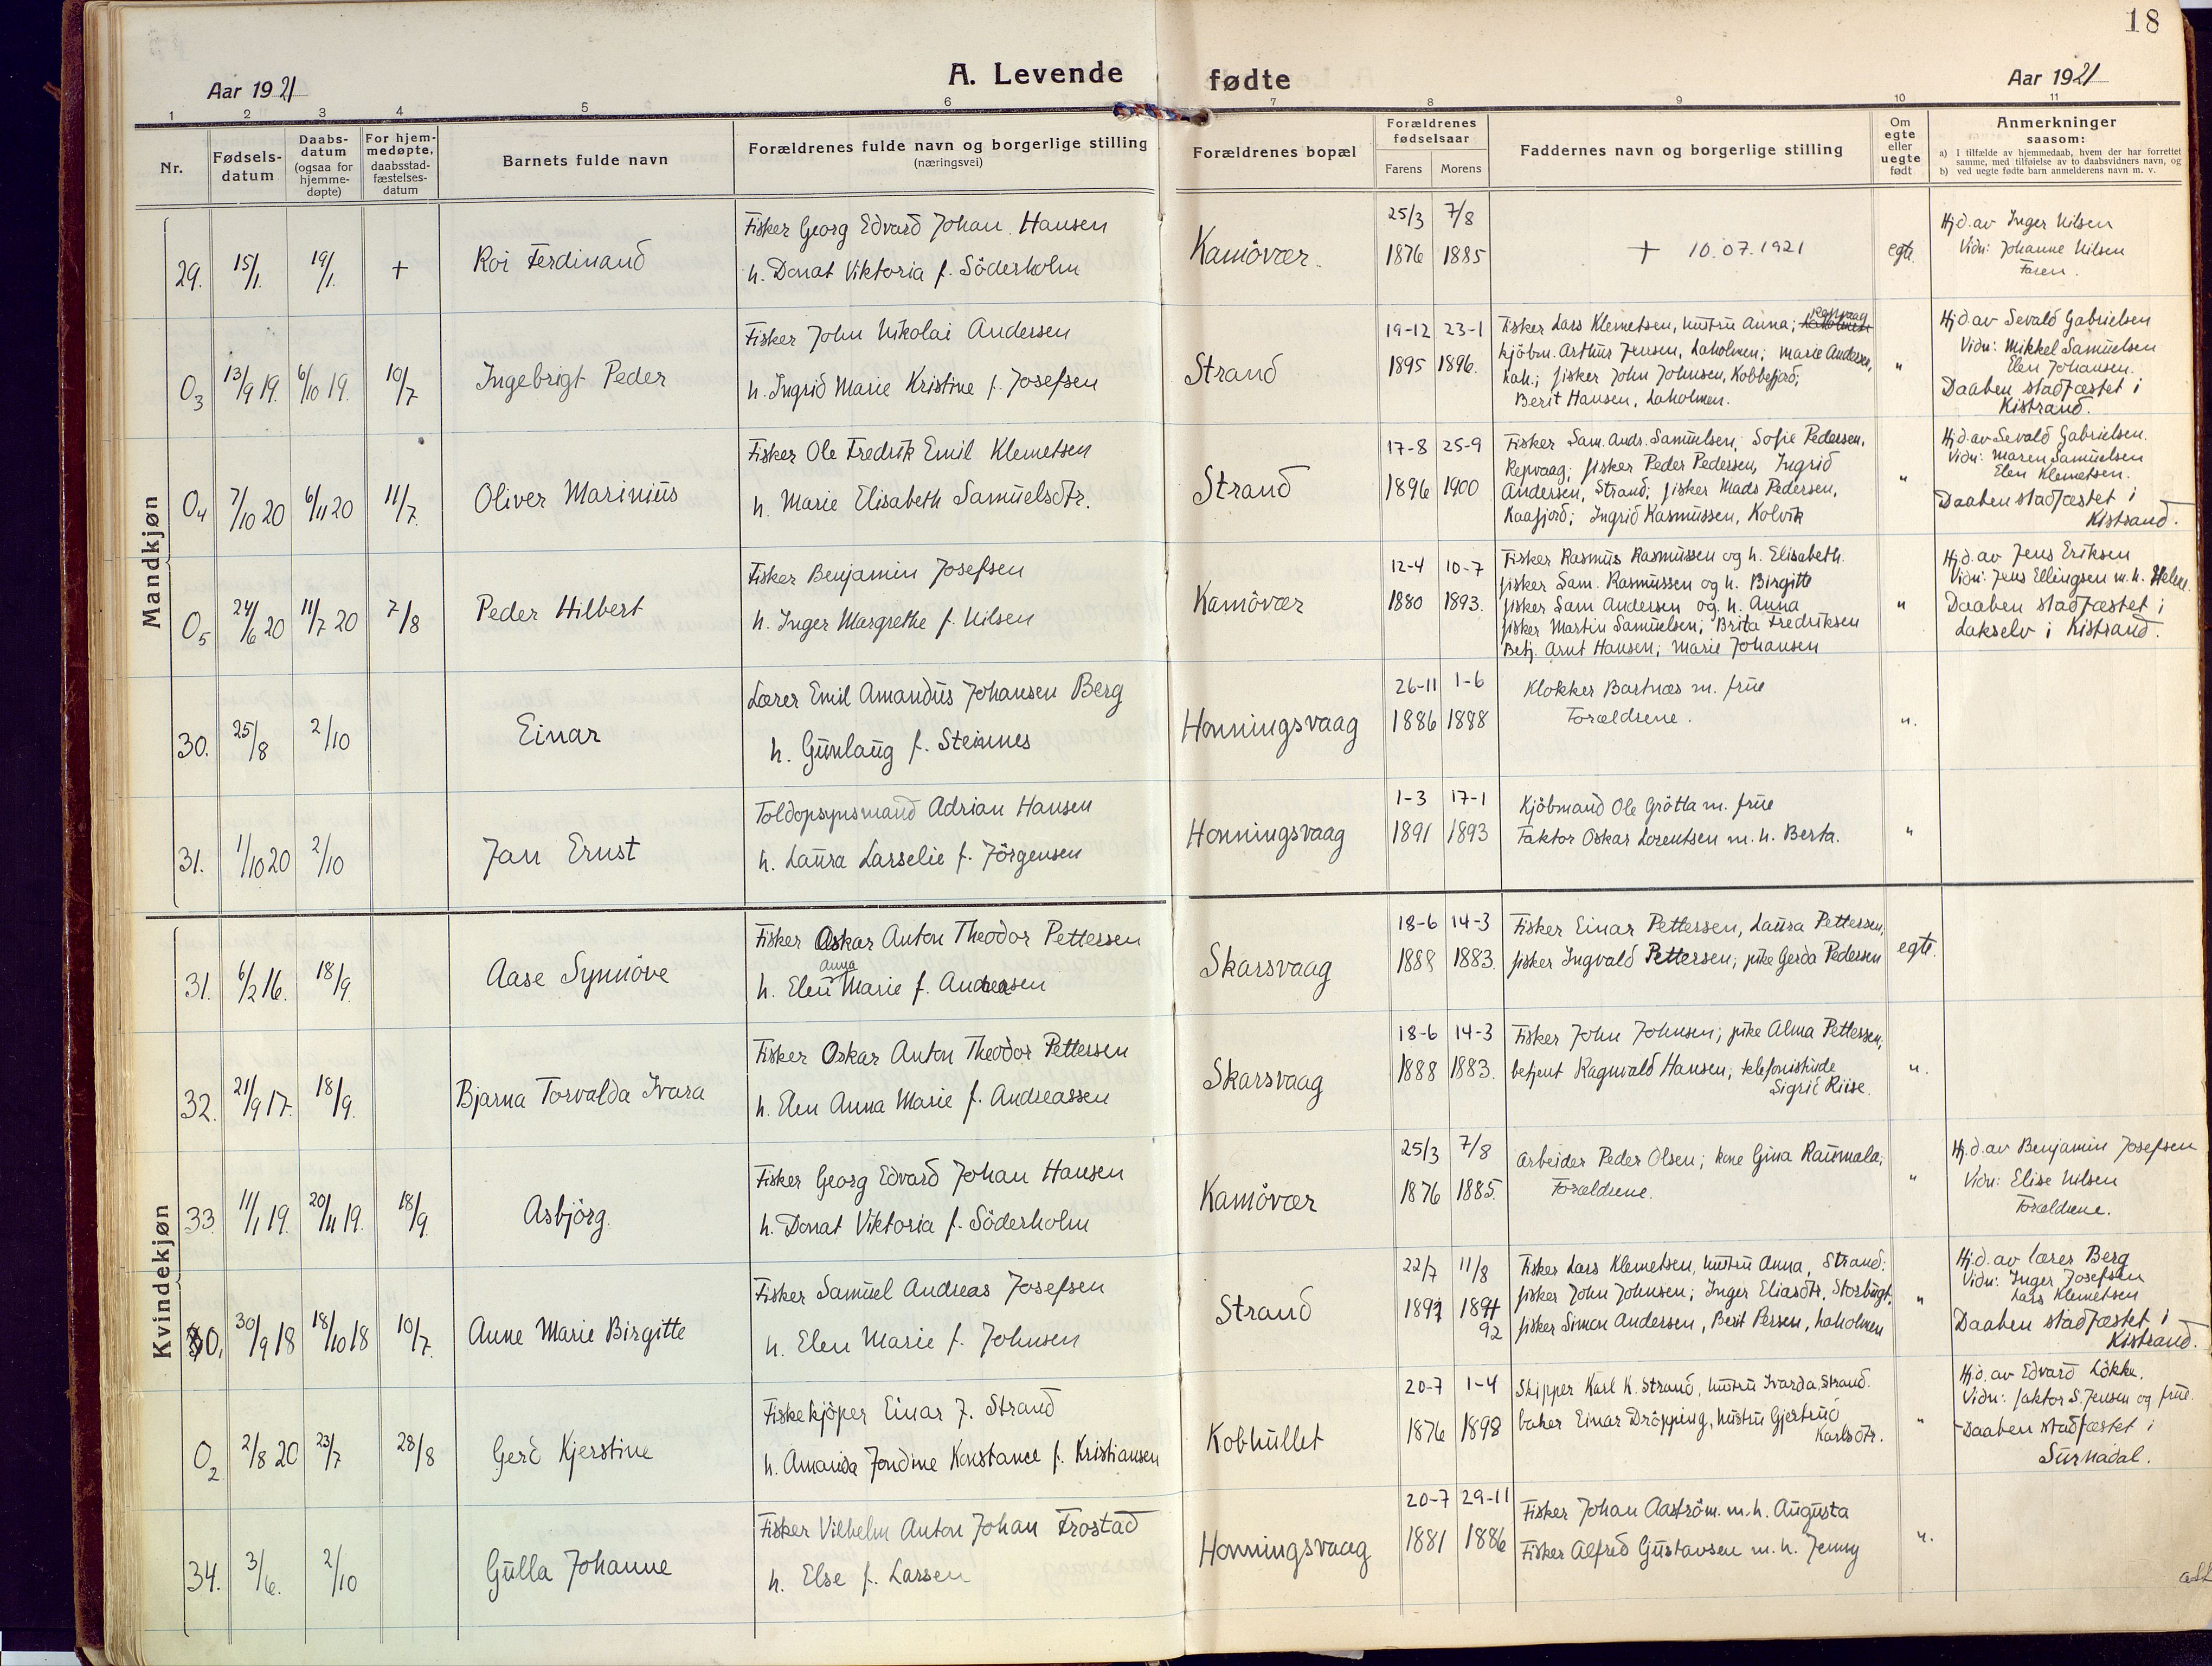 18
A. Levende fødte
Aar 1921
Aar 1921
1 2 3 4 5 6 7 8 9 10 11
Nr.
Fødsels-
datum
Daabs-
datum
(ogsaa for
hjemme-
døpte)
For hjem-
medøpte,
daabsstad-
fæstelses-
datum
Barnets fulde navn
Forældrenes fulde navn og borgerlige stilling
(næringsvei)
Forældrenes bopæl
Forældrenes
fødselsaar
Farens
Morens
Faddernes navn og borgerlige stilling
Om
egte
eller
uegte
født
Anmerkninger
saasom:
a) I tilfælde av hjemmedaab, hvem der har forrettet
samme, med tilføielse av to daabsvidners navn, og
b) ved uegte fødte barn anmelderens navn m. v.
Mandkjøn
29. 15/1. 19/1. +
Roi Ferdinand
Fisker Georg Edvard Johan Hansen
h. Donat Viktoria f. Söderholm
Kamövær.
25/3 7/8
1876 1885
+ 10.07.1921
egte.
Hj.d. av Inger Nilsen
Vidn: Johanne Nilsen
Faren.
O3 13/9 19. 6/10 19. 10/7
Ingebrigt Peder
Fisker John Nikolai Andersen
h. Ingrid Marie Kristine f. Josefsen
Strand
19-12 23-1
1895 1896.
Fisker Lars Klemetsen, hustru Anna; Repvaag
kjöbm. Arthur Jensen, Laholmen; Marie Andersen,
Lah.; fisker John Johnsen, Kobbefjord;
Berit Hansen, Laholmen.
"
Hj.d. av Sevald Gabrielsen
Vidn: Mikkel Samuelsen
Elen Johansen.
Daaben stadfæstet i
Kistrand.
O4 7/10 20 6/11 20 11/7
Oliver Marinius
Fisker Ole Fredrik Emil Klemetsen
h. Marie Elisabeth Samuelsdtr.
Strand
17-8 25-9
1896 1900
Fisker Sam. Andr. Samuelsen; Sofie Pedersen,
Repvaag; fisker Peder Pedersen, Ingrid
Andersen, Strand; fisker Mads Pedersen,
Kaafjord; Ingrid Rasmussen, Kolvik
"
Hj.d. av Sevald Gabrielsen.
Vidn: Maren Samuelsen
Elen Klemetsen.
Daaben stadfæstet i
Kistrand.
O5 24/6 20 11/7 20 7/8
Peder Hilbert
Fisker Benjamin Josefsen
h. Inger Margrethe f. Nilsen
Kamövær
12-4 10-7
1880 1893.
Fisker Rasmus Rasmussen og h. Elisabeth.
fisker Sam. Rasmussen og h. Birgitte
fisker Sam Andersen og h. Anna
fisker Martin Samuelsen; Brita Fredriksen
Betj. Arnt Hansen; Marie Johansen
"
Hj.d. av Jens Eriksen
Vidn: Jens Ellingsen m. h. Helene
Daaben stadfæstet i
Lakselv i Kistrand.
30. 25/8 2/10
Einar
Lærer Emil Amandus Johansen Berg
h. Gunlaug f. Steinnes
Honningsvaag
26-11 1-6
1886 1888
Klokker Bastnæs m. frue
Forældrene.
".
31. 1/10 20 2/10
Jan Ernst
Toldopsynsmand Adrian Hansen
h. Laura Larselie f. Jörgensen
Honningsvaag
1-3 17-1
1891 1893
Kjöbmand Ole Grötta m. frue
Faktor Oskar Lorentsen m. h. Berta.
"
Kvindekjøn
31. 6/2 16. 18/9.
Aase Synnöve
Fisker Oskar Anton Theodor Pettersen
h. Elen Anna Marie f. Andreasen
Skarsvaag
18-6 14-3
1888 1883.
Fisker Einar Pettersen, Laura Pettersen,
fisker Ingvald Pettersen; pike Gerda Pedersen
egte.
32. 21/9 17. 18/9.
Bjarna Torvalda Ivara
Fisker Oskar Anton Theodor Pettersen
h. Elen Anna Marie f. Andreassen
Skarsvaag
18-6 14-3
1888 1883.
Fisker John Johnsen; pike Alma Pettersen,
betjent Ragnvald Hansen; telefonistinde
Sigrid Riise.
".
33 11/1 19. 20/11 19. 18/9.
Asbjörg.
Fisker Georg Edvard Johan Hansen
h. Donat Viktoria f. Söderholm
Kamövær
25/3 7/8
1876 1885.
Arbeider Peder Olsen; kone Gina Raumala;
Forældrene.
"
Hj.d. av Benjamin Josefsen
Vidn: Elise Nilsen
Forældrene.
O1 30/9 18 18/10 18 10/7.
Anne Marie Birgitte
Fisker Samuel Andreas Josefsen
h. Elen Marie f. Johnsen
Strand
22/7 11/8
1891 92
Fisker Lars Klemetsen, hustru Anna, Strand;
fisker John Johnsen; Inger Eliasdtr. Storbugt,
fisker Simon Andersen, Berit Persen, Laholmen
"
Hj.d. av lærer Berg
Vidn: Inger Josefsen
Lars Klemetsen
Daaben stadfæstet i
Kistrand.
O2 2/8 20 23/7 28/8
Gerd Kjerstine
Fiskekjöper Einar J. Strand
h. Amanda Jondine Konstance f. Kristiansen
Kobhullet
20-7 1-4
1876 1898
Skipper Karl K. Strand, hustru Ivarda Strand.
baker Einar Dröpping, hustru Gjertrud
Karlsdtr.
"
Hj.d. av Edvard Lökke.
Vidn: faktor S. Jensen og frue.
Daaben stadfæstet i
Surnadal.
34. 3/6. 2/10
Gulla Johanne
Fisker Vilhelm Anton Johan Frostad
h. Else f. Larsen
Honningsvaag
20-7 29-11
1881 1886
Fisker Johan Aaström m. h. Augusta
Fisker Alfred Gustavsen m. h. Jenny
".